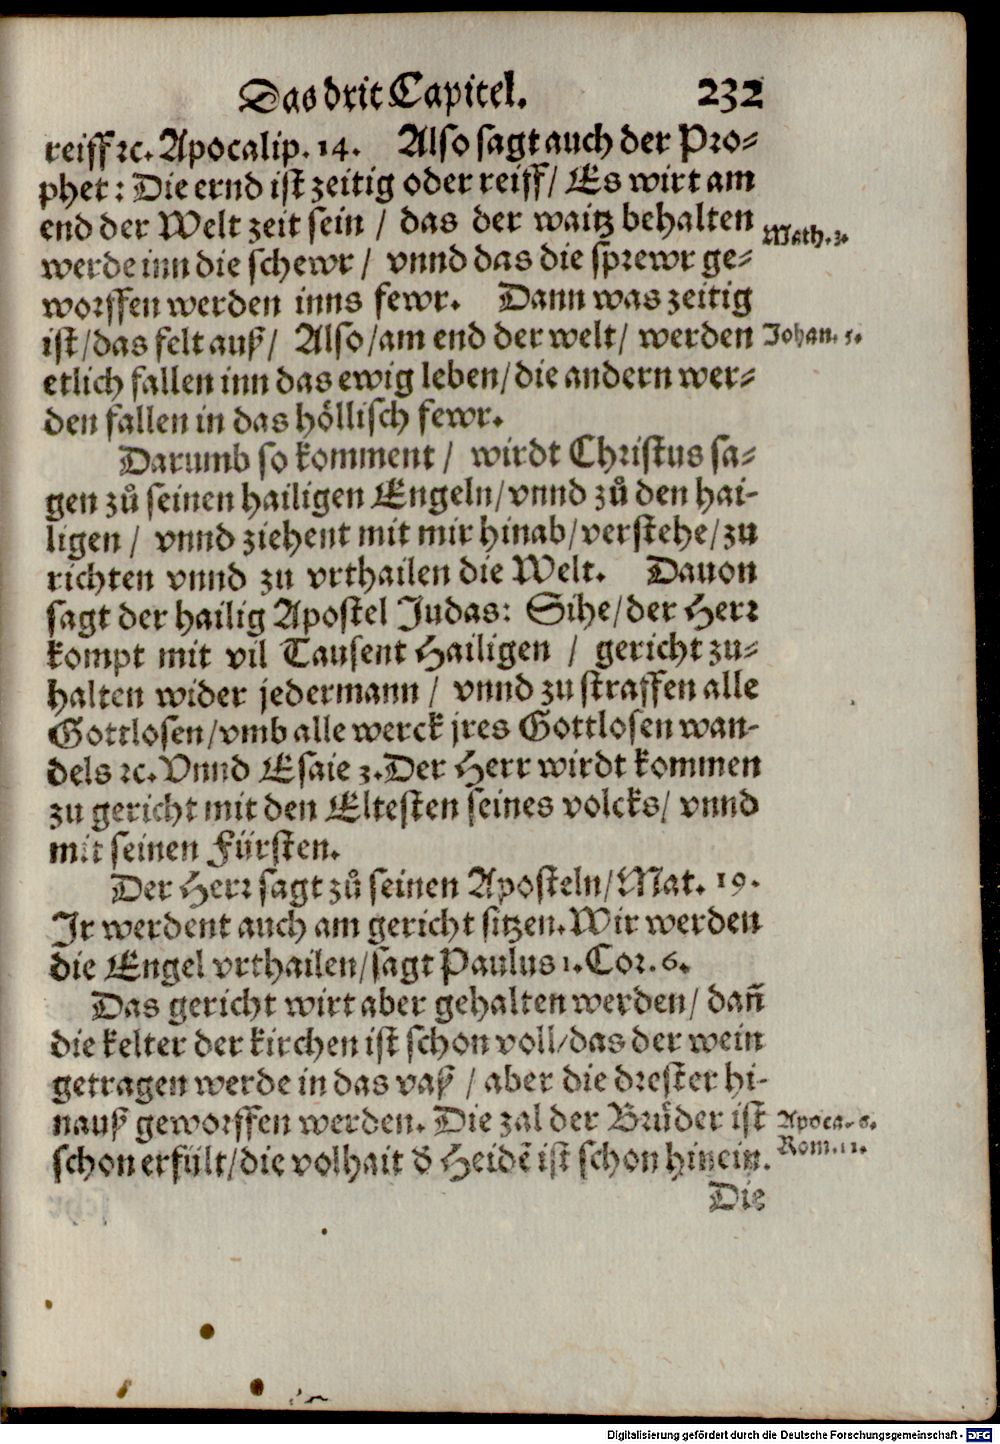 Das drit Capitel. 232
reiff ꝛc. Apocalip. 14. Also sagt auch der Pro-
phet: Die ernd ist zeitig oder reiff/ Es wirt am
end der Welt zeit sein / das der waitz behalten
Math. 3.
werde inn die schewr / vnnd das die sprewr ge-
worffen werden inns fewr. Dann was zeitig
ist/das felt auß/ Also/am end der welt/ werden
Johan. 5.
etlich fallen inn das ewig leben/die andern wer-
den fallen in das höllisch fewr.
Darumb so komment / wirdt Christus sa-
gen zů seinen hailigen Engeln/vnnd zů den hai-
ligen / vnnd ziehent mit mir hinab/verstehe/zu
richten vnnd zu vrthailen die Welt. Dauon
sagt der hailig Apostel Judas: Sihe/der Herr
kompt mit vil Tausent Hailigen / gericht zu-
halten wider jedermann / vnnd zu straffen alle
Gottlosen/vmb alle werck jres Gottlosen wan-
dels ꝛc. Vnnd Esaie 3. Der Herr wirdt kommen
zu gericht mit den Eltesten seines volcks/ vnnd
mit seinen Fürsten.
Der Herr sagt zů seinen Aposteln/Mat. 19.
Ir werdent auch am gericht sitzen. Wir werden
die Engel vrthailen/sagt Paulus 1. Cor. 6.
Das gericht wirt aber gehalten werden/ dañ
die kelter der kirchen ist schon voll/das der wein
getragen werde in das vaß / aber die drester hi-
nauß geworffen werden. Die zal der Brůder ist
Apoca. 6.
schon erfült/die volhait ď Heidẽ ist schon hinein.
Rom. 11.
Die
Digitalisierung gefördert durch die Deutsche Forschungsgemeinschaft - DFG